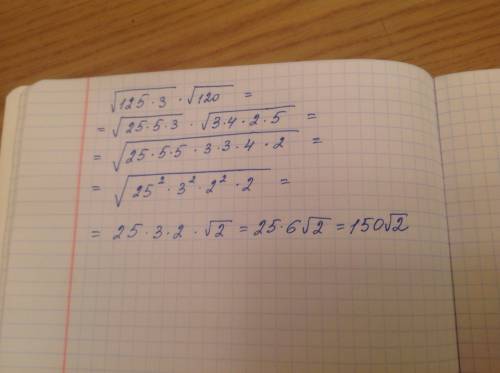 √125·3 · √120 =
= √25·5·3 · √3·4·2·5 =
= √25·5·5·3·3·4·2 =
= √25²·3²·2²·2 =
= 25·3·2·√2 = 25·6√2 = 150√2